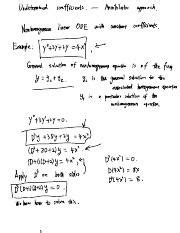 Undetermined coefficients — Annihilator approach
Nonhomogeneous linear ODE with constant coefficients.
Example: y''+3y'+2y = 4x²
General solution of nonhomogeneous equation is of the form
y = y_c + y_p   y_c is the general solution to the
associated homogeneous equation
y_p is a particular solution of the
nonhomogeneous equation.
y''+3y'+2y=0.
D²y+3Dy+2y = 4x²
(D²+3D+2)y = 4x²
(D+1)(D+2)y = 4x²   D³(4x²)=0.
Apply D³ on both sides   D(4x²) = 8x
D³(D+1)(D+2)y = 0.   D²(4x²) = 8.
We know how to solve this.